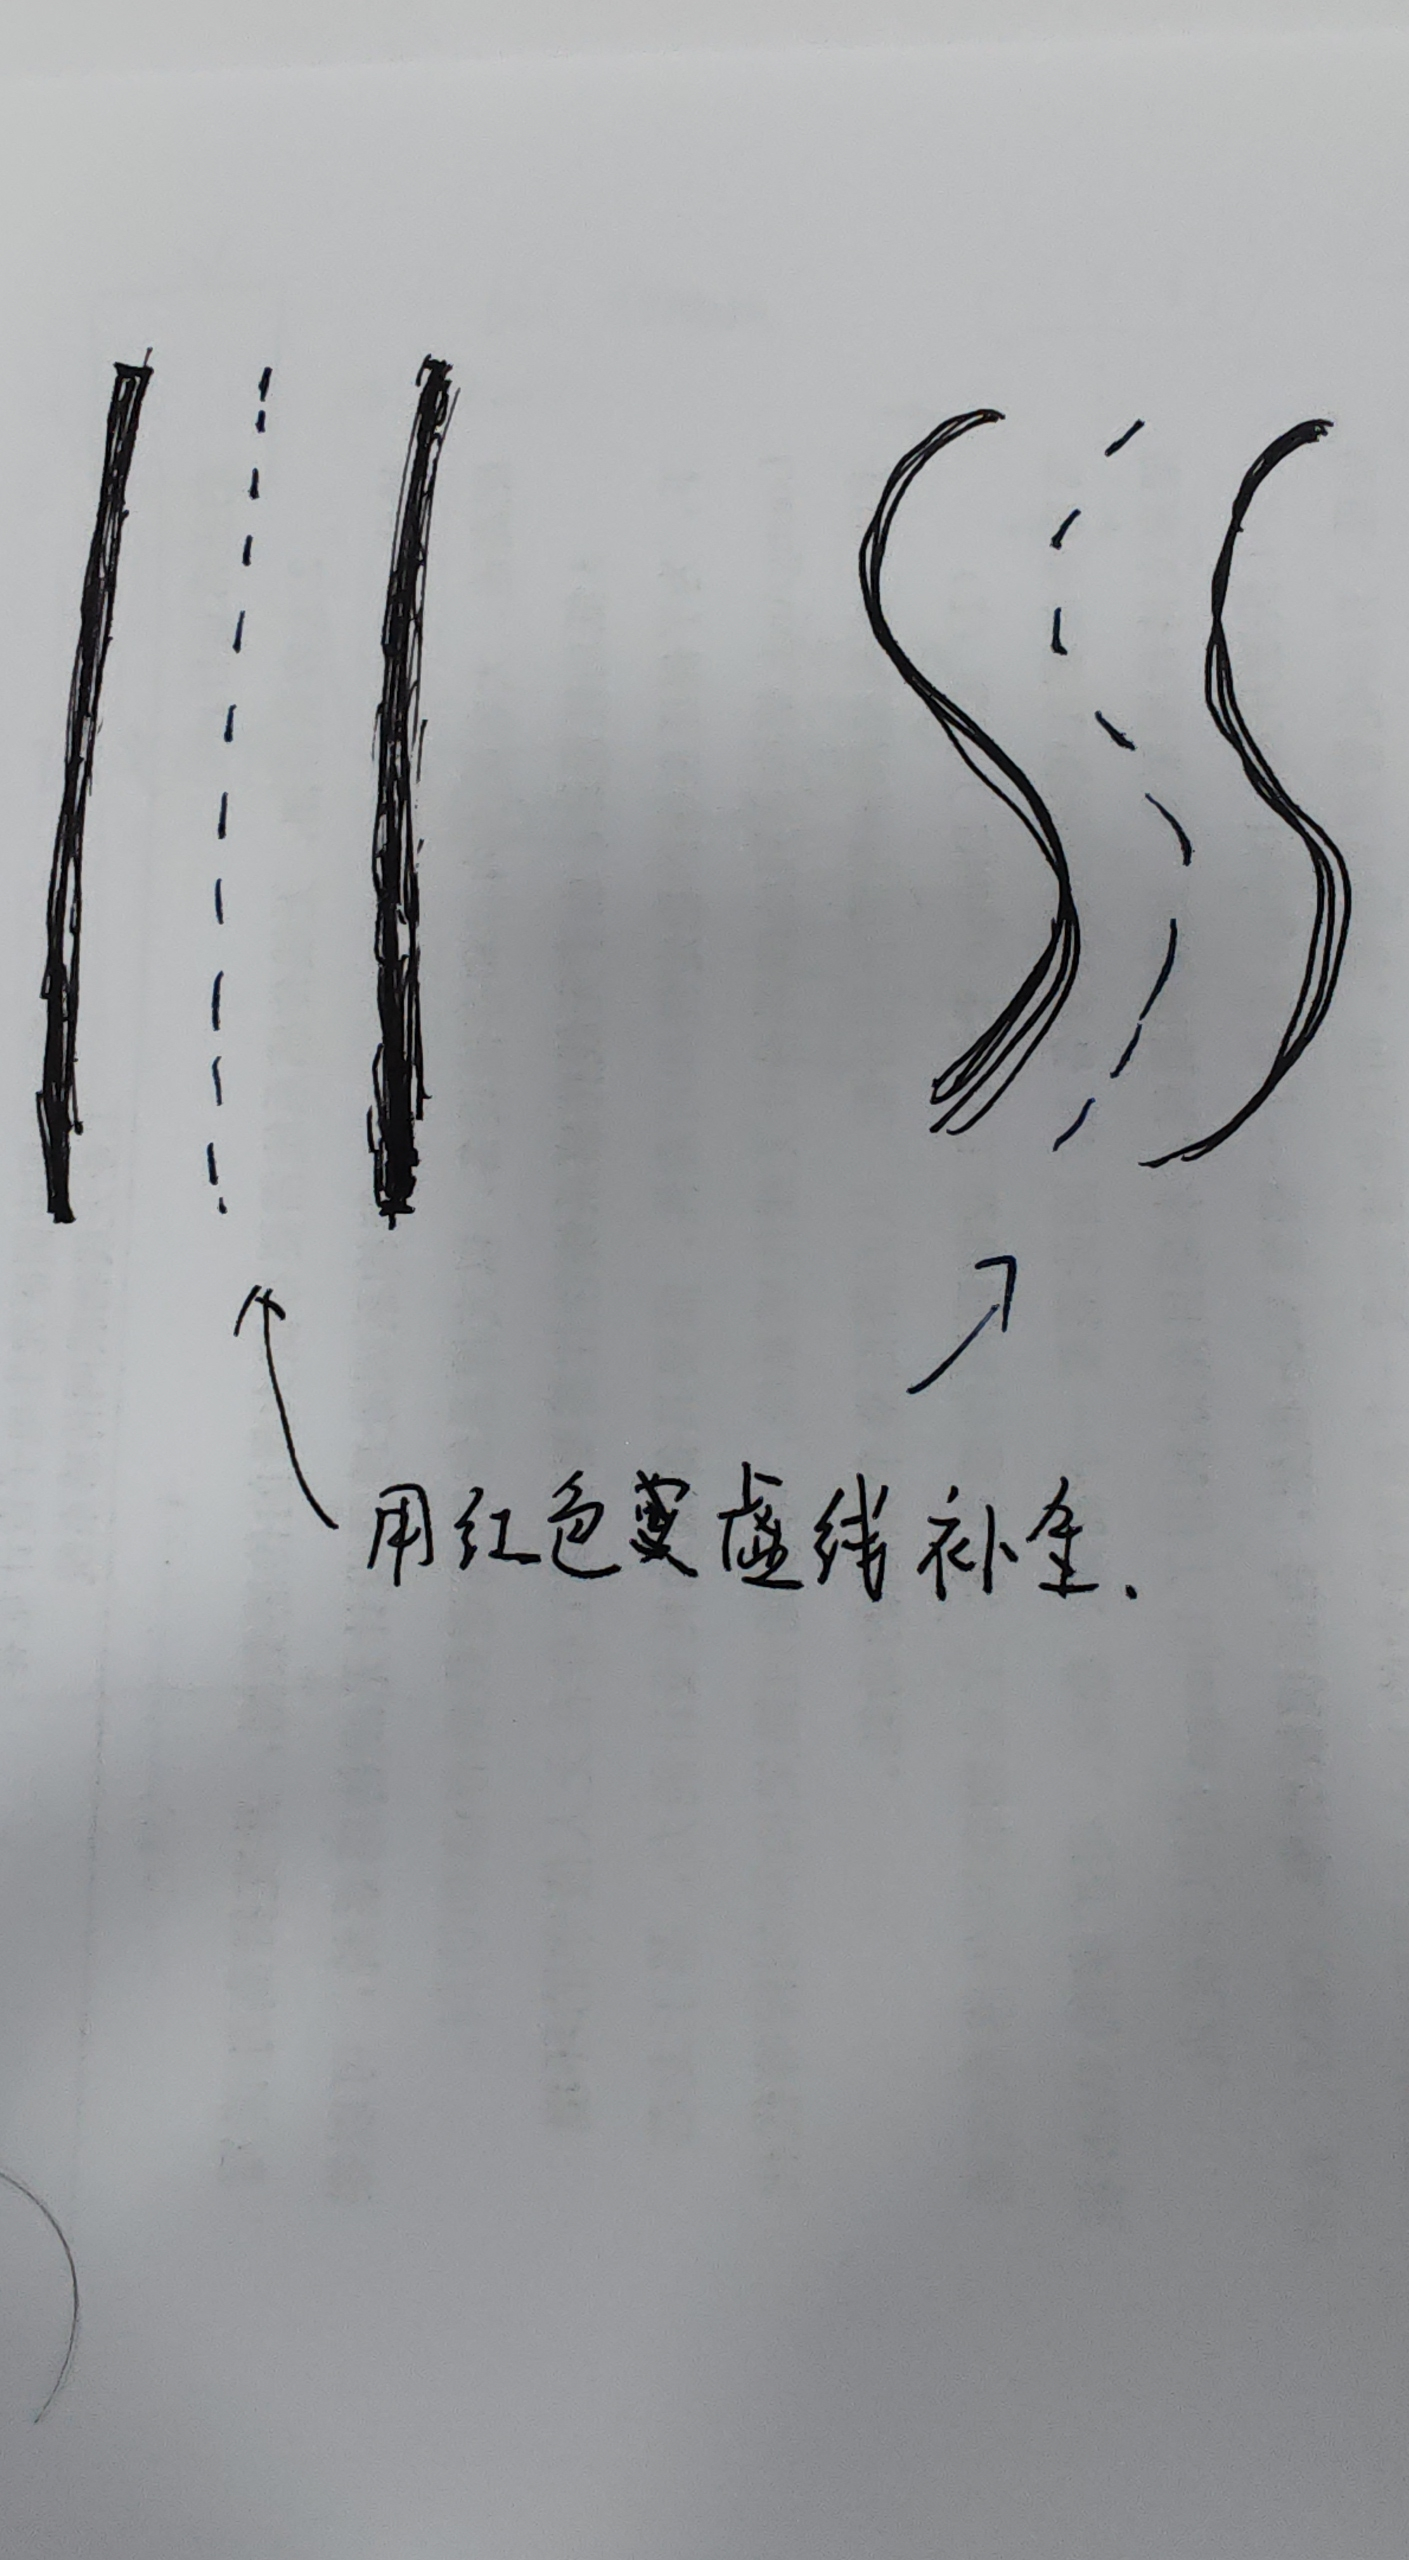 用红色虚线补全.